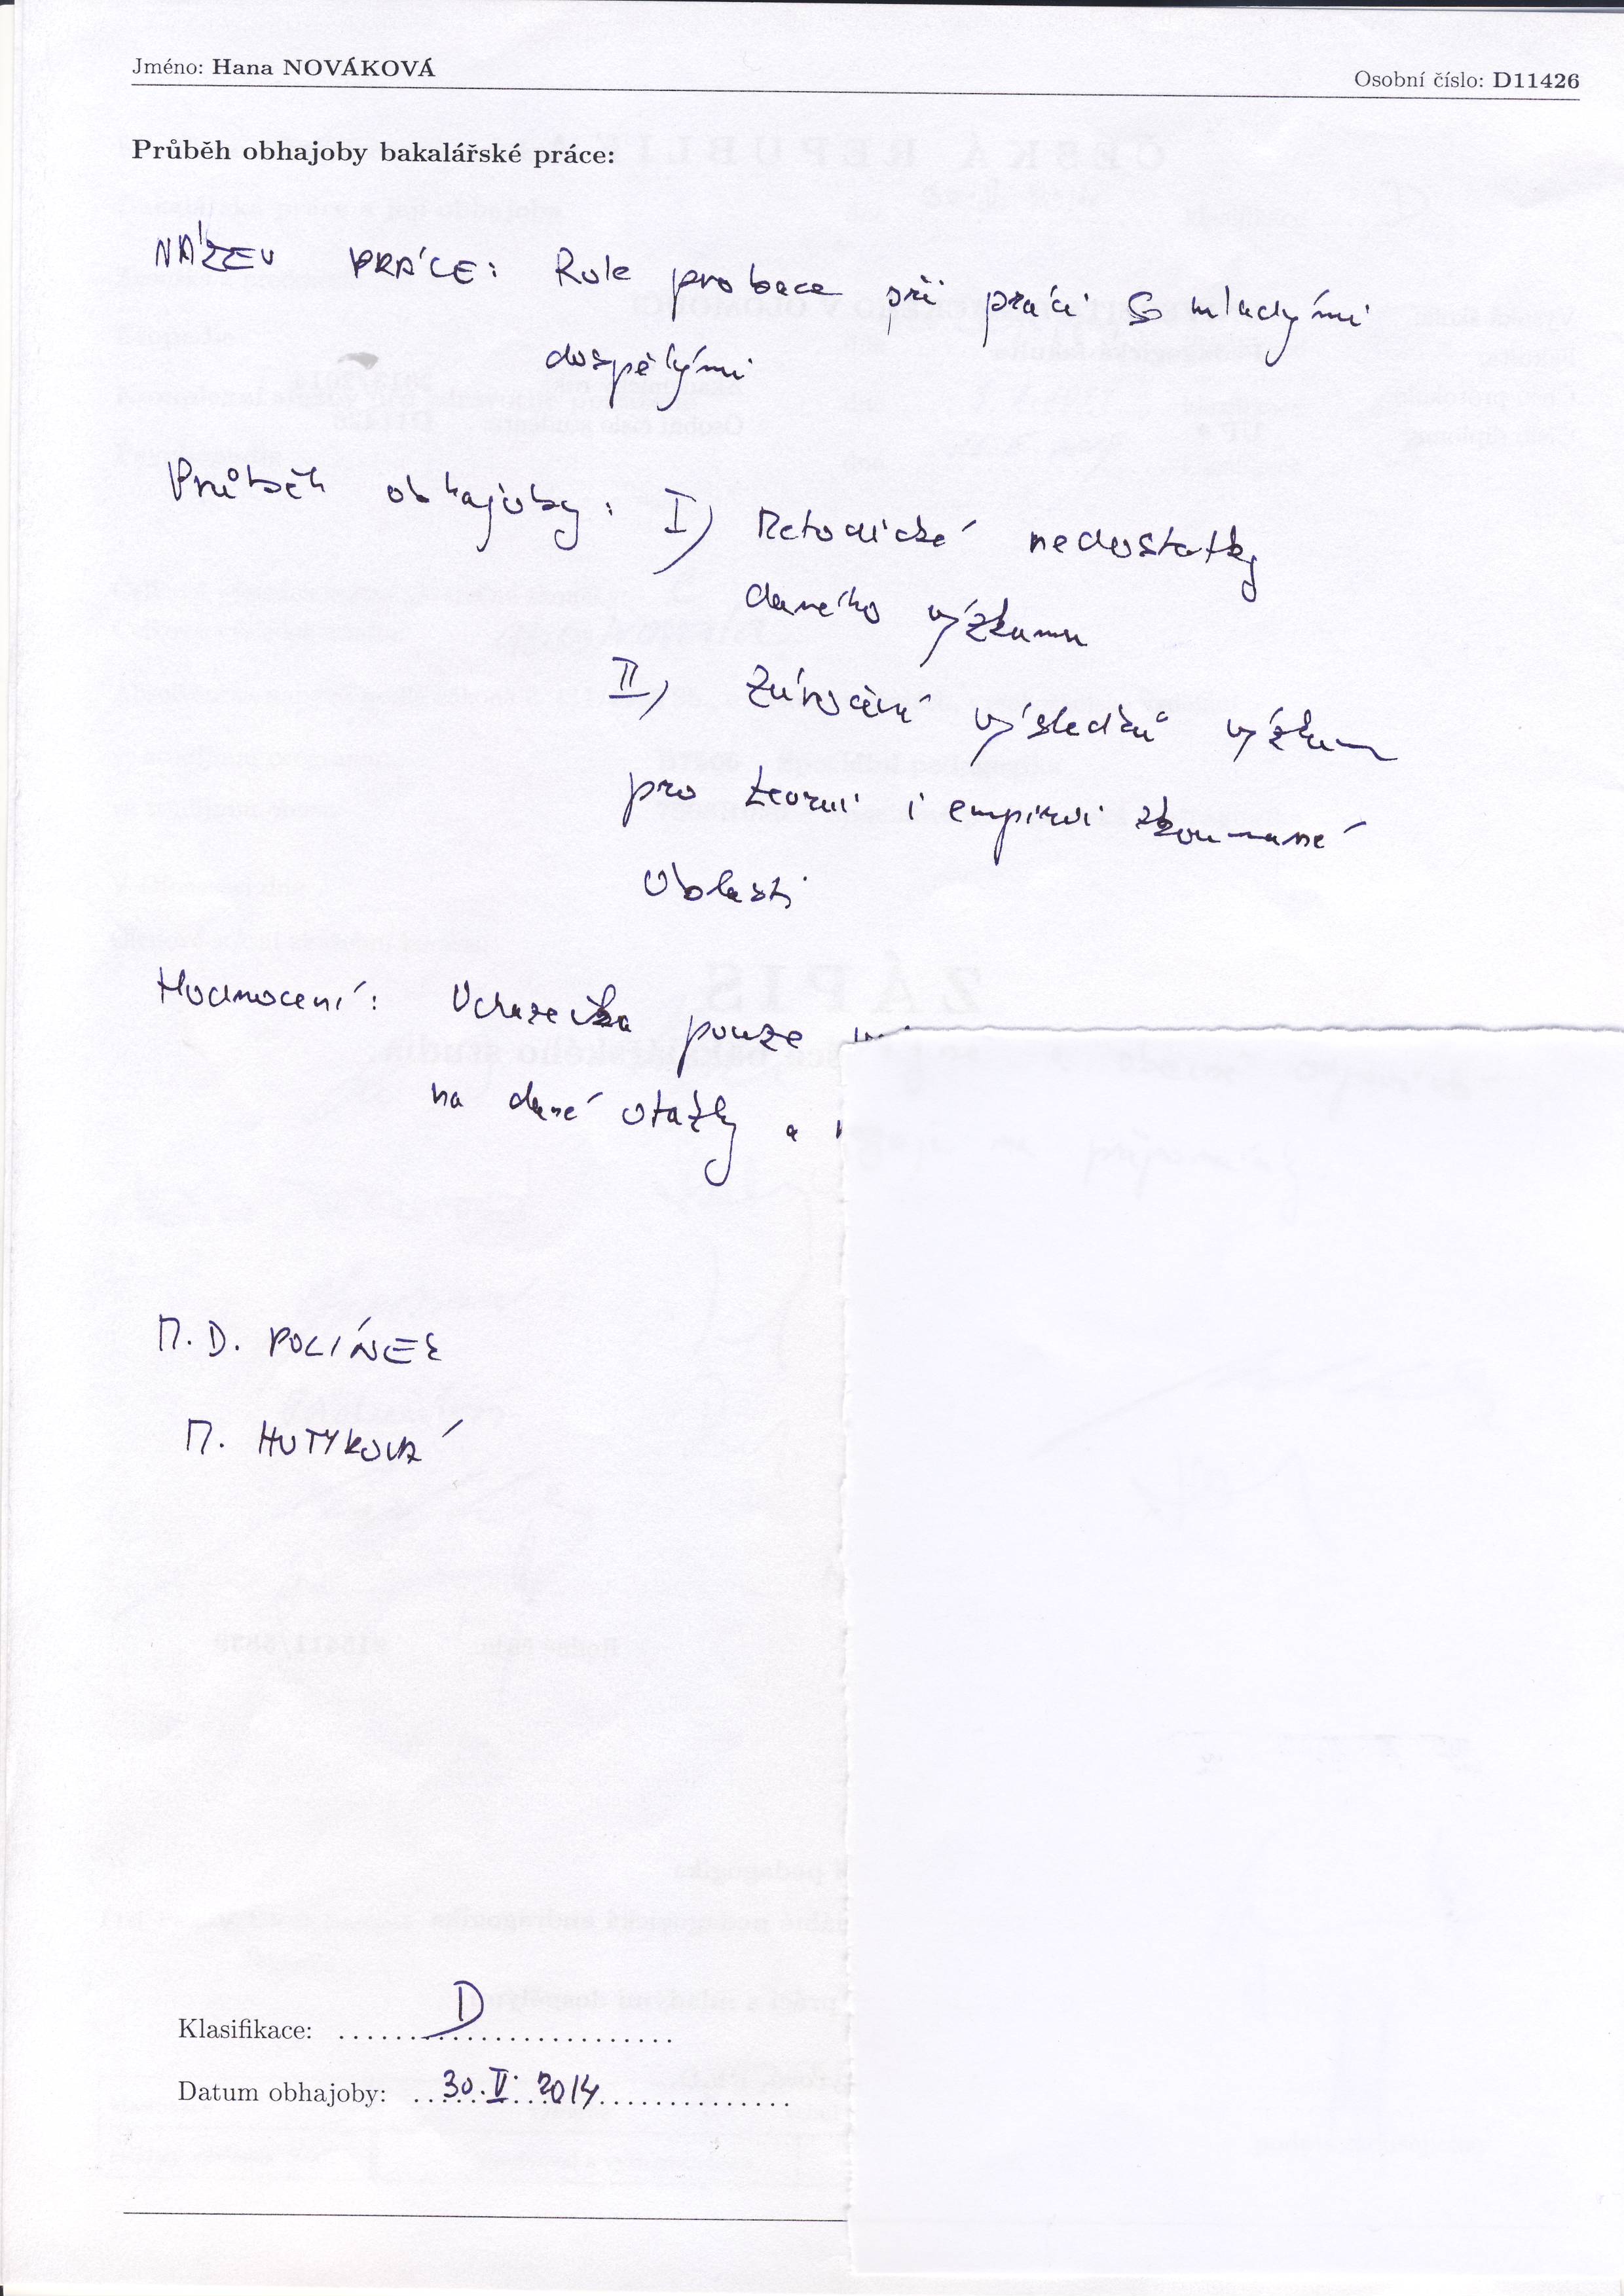 Jméno: Hana NOVÁKOVÁ
Osobní číslo: D11426
Průběh obhajoby bakalářské práce:
NÁZEV PRÁCE: Role probace při práci s mladými
dospělými
Průběh obhajoby: I) Metodické nedostatky
daného výzkumu
II) Zúročení výsledků výzkumu
pro teorii i empirii zkoumané
oblasti
Hodnocení: Uchazečka pouze
na dané otázky a
M. D. POLÍNEK
M. HUTYROVÁ
Klasifikace: D
Datum obhajoby: 30. V. 2014